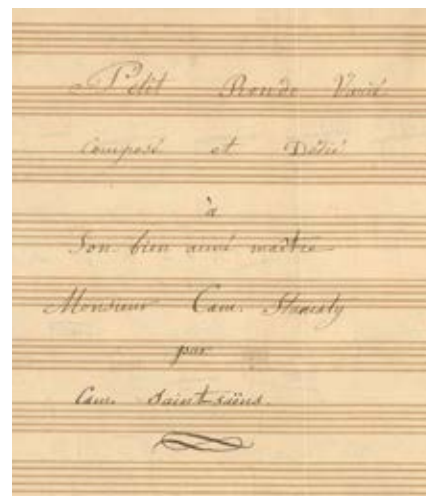 Petit Rondo Varié
Composé et Dédié
à
Son bien aimé maître
Monsieur Cam. Stamaty
par
Cam. Saint-saëns.